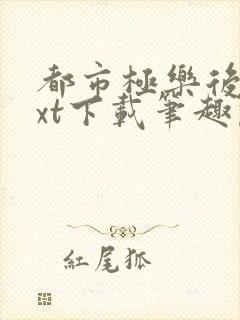 都市極樂後
xt下載筆趣
紅尾狐